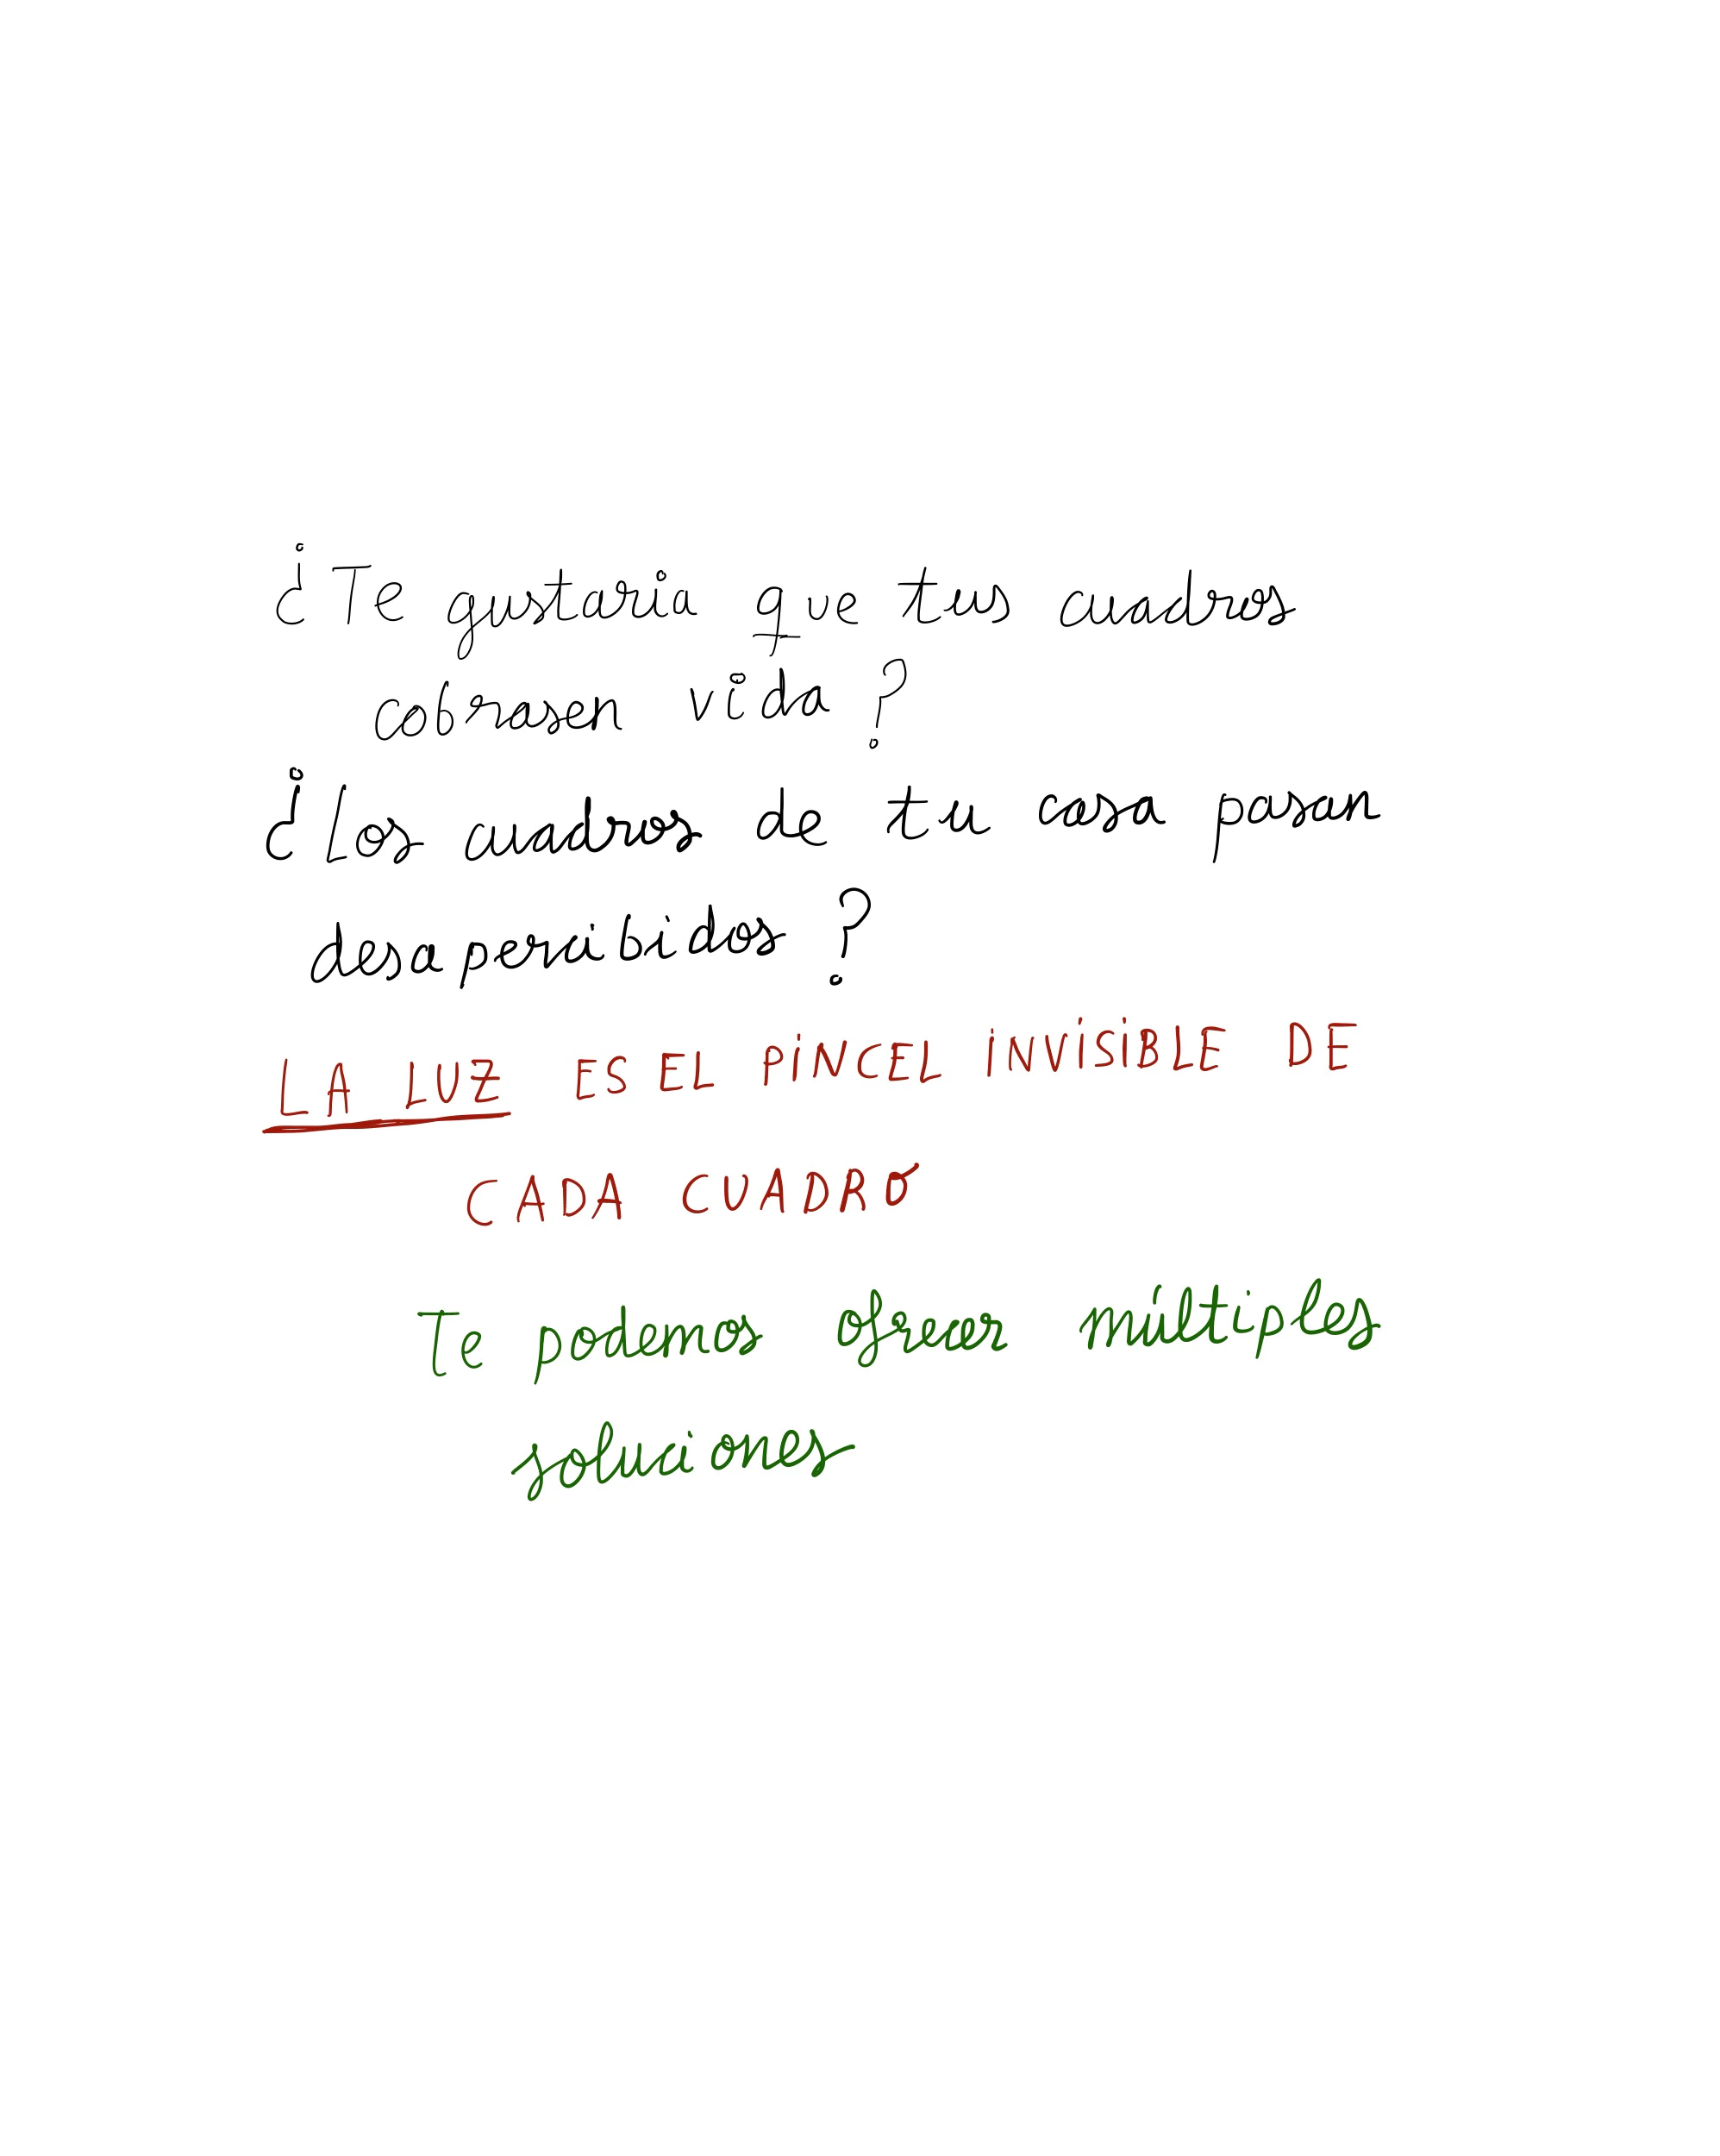 ¿Te gustaria que tus cuadros
cobrasen vida?
¿Los cuadros de tu casa pasan
desapercibidos?
LA LUZ ES EL PINCEL INVISIBLE DE
CADA CUADRO
Te podemos ofrecer múltiples
soluciones